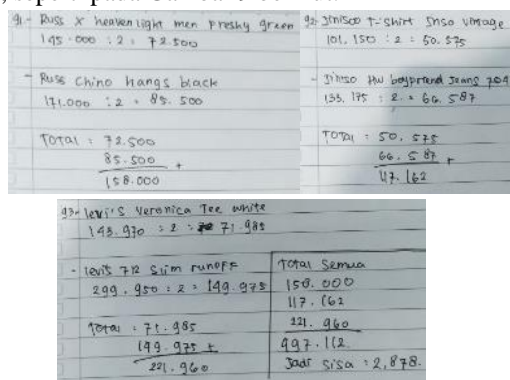 g1- Russ x heavenlight men freshy green
145.000 : 2 = 72.500
- Russ Chino hangs black
171.000 : 2 = 85.500
Total = 72.500
85.500 +
158.000
g2- Jiniso T-Shirt Inso vintage
101.150 : 2 = 50.575
- Jiniso HW boyfriend Jeans 704
133.175 : 2 = 66.587
Total = 50.575
66.587 +
117.162
g3- levi's Veronica Tee white
143.970 : 2 = 71.985
- levis 712 slim runoff
299.950 : 2 = 149.975
Total = 71.985
149.975 +
221.960
Total Semua
158.000
117.162
221.960
497.112
Jadi sisa = 2,878.